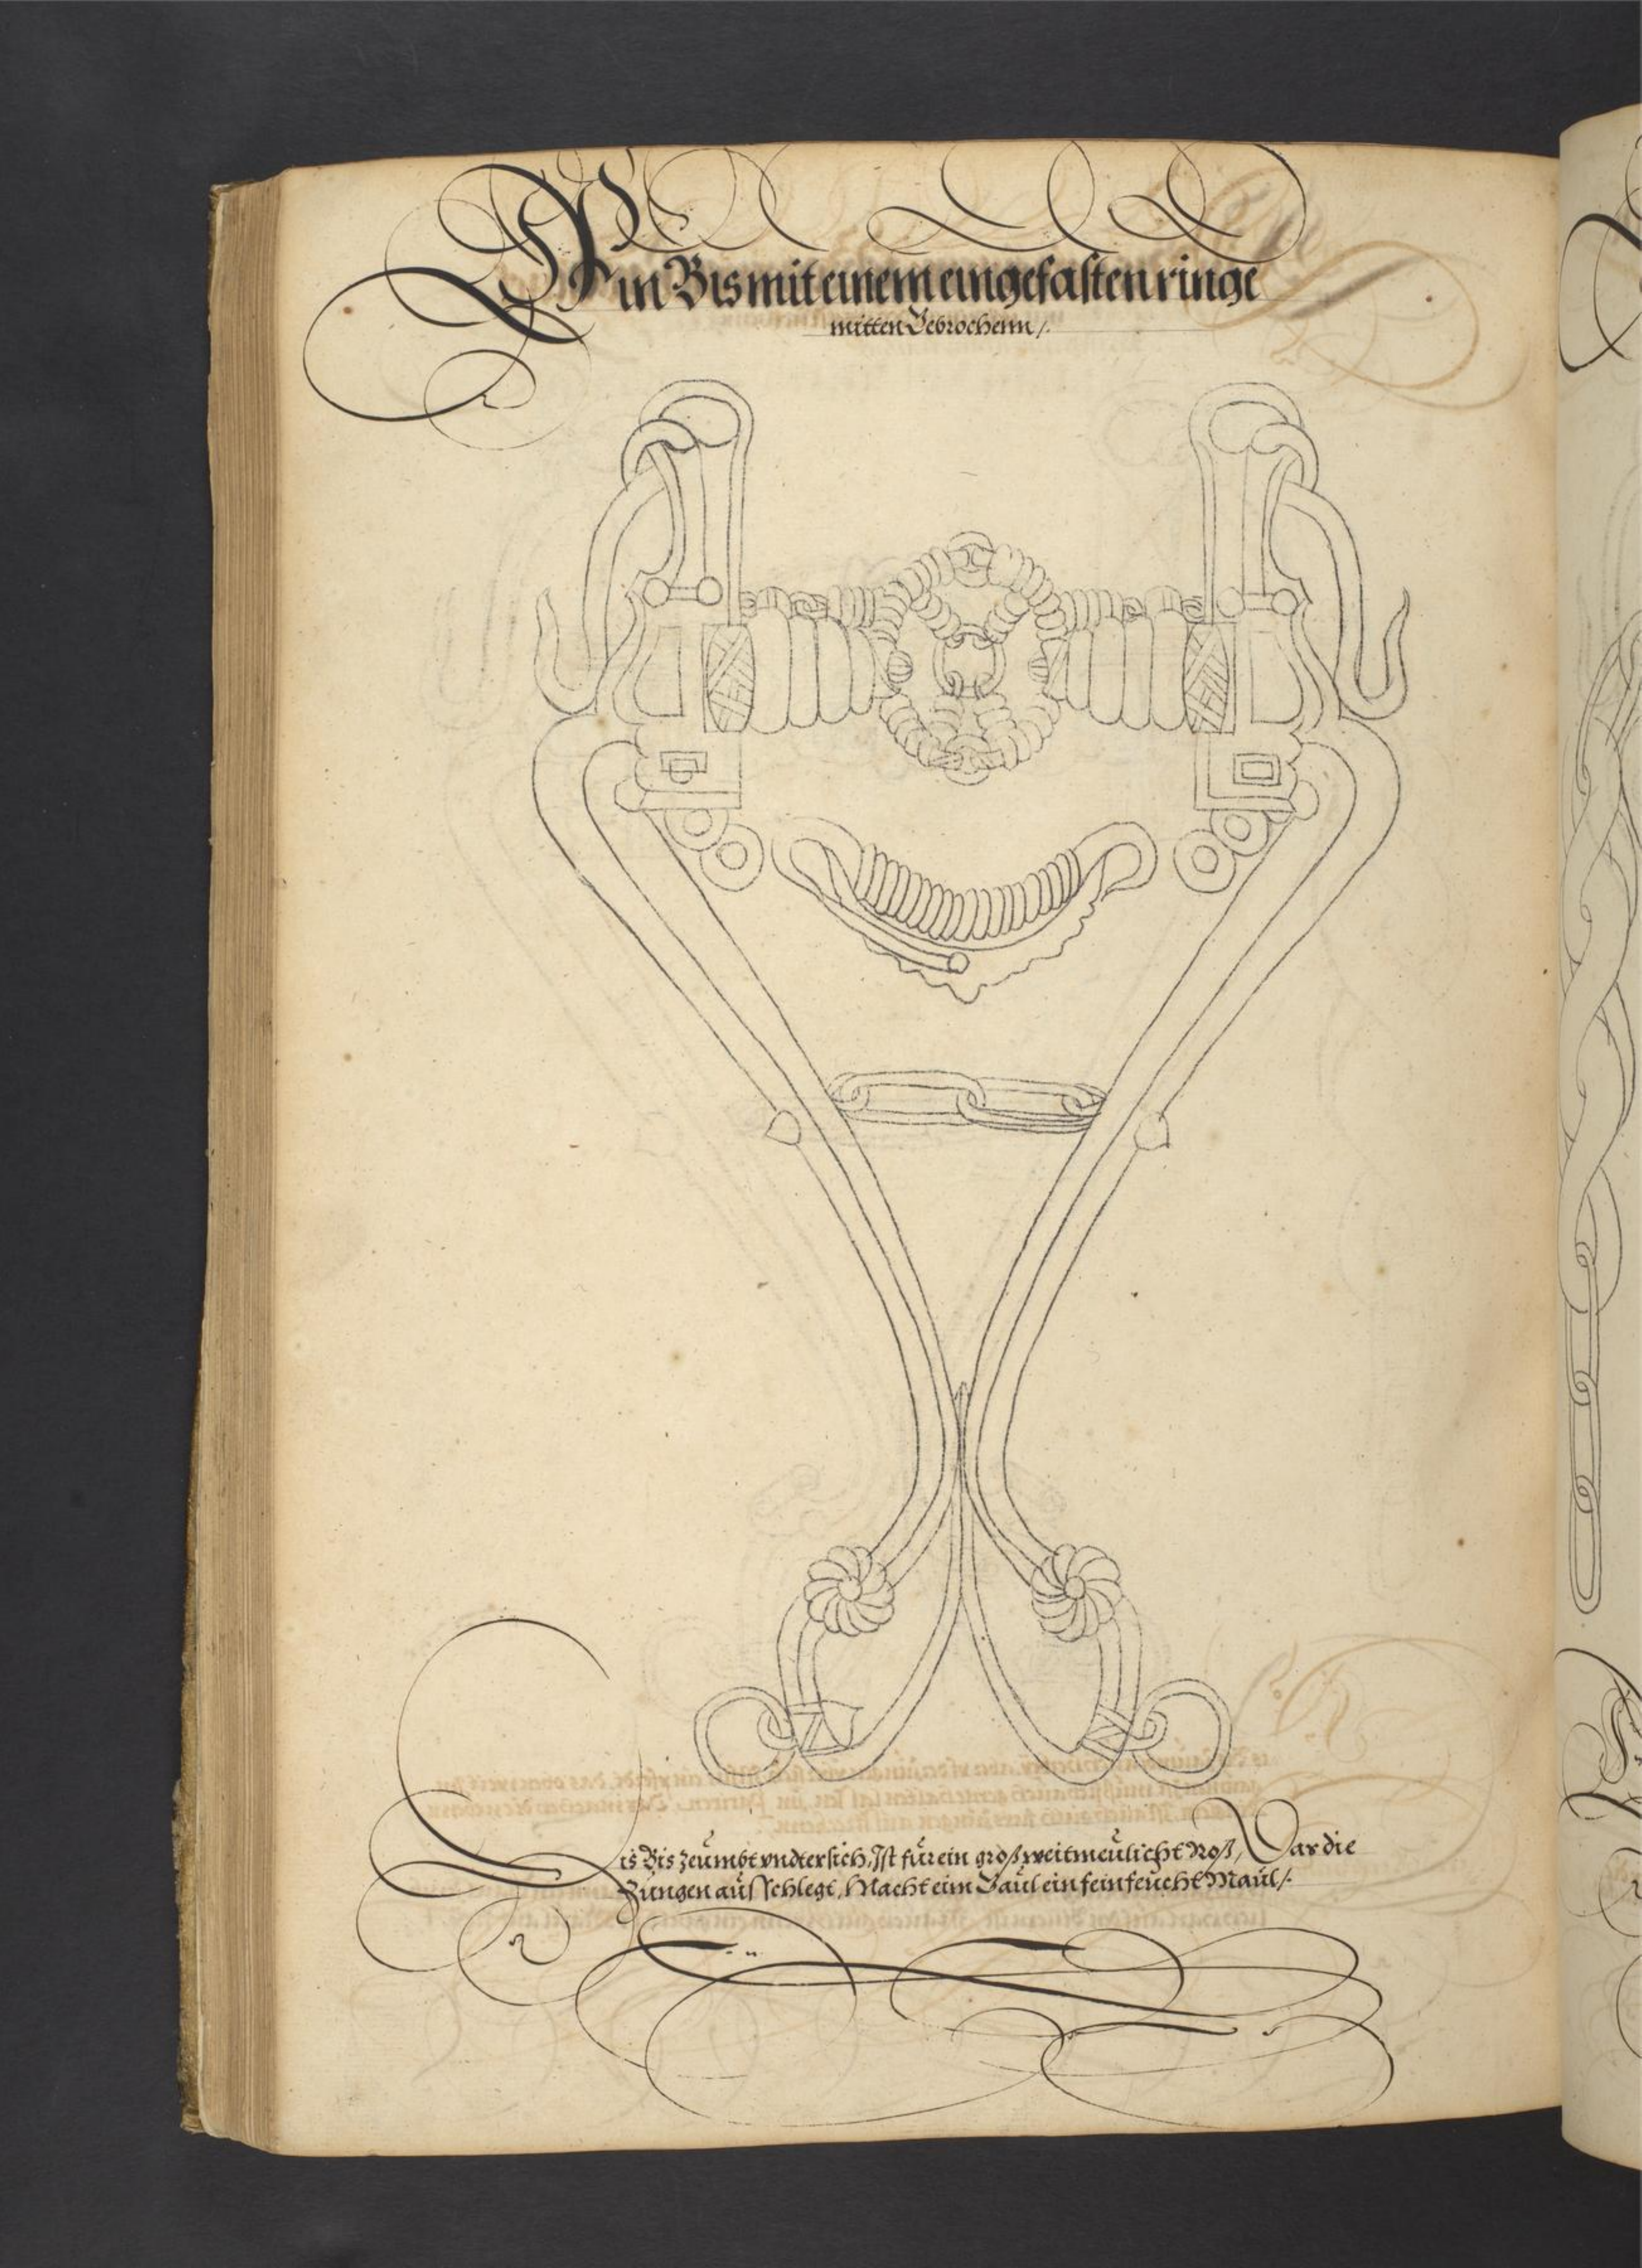 Ein Bis mit einem eingefasten ringe
mitten Gebrochenn /.
is Bis zeumbt vndter sich, Ist für ein groß weitmeulicht Roß, Das die
Zungen aus schlegt, Macht eim Gaul ein fein feucht Maul /.